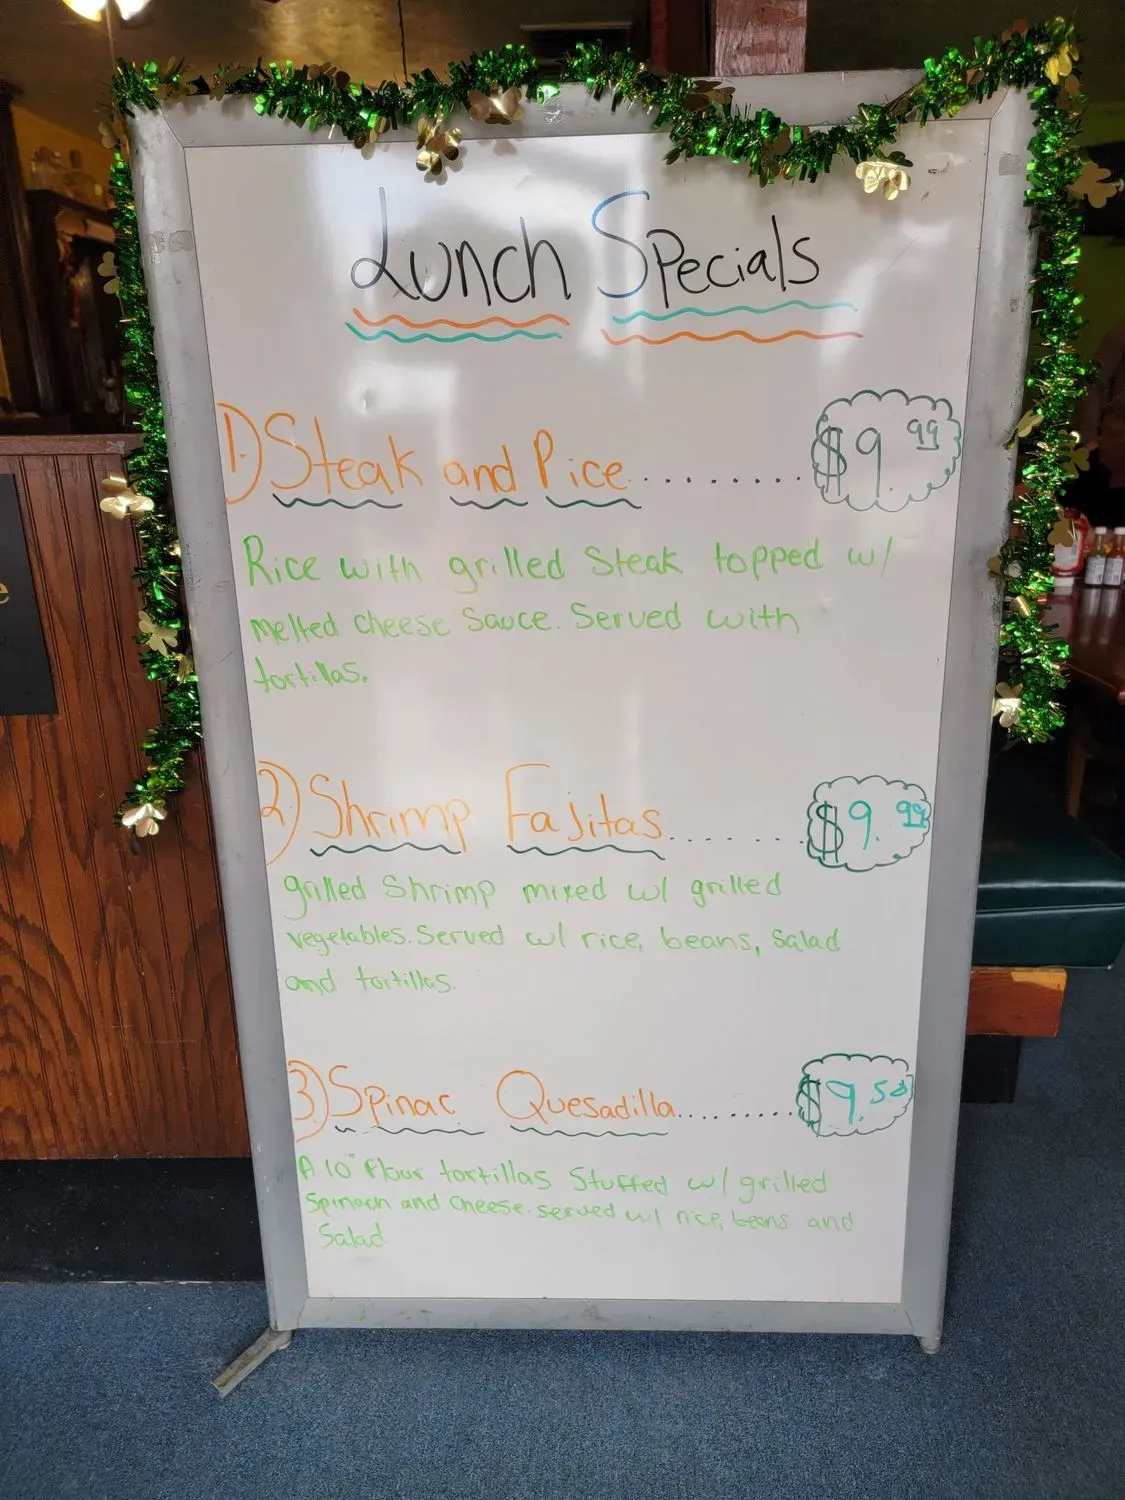 Lunch Specials
1) Steak and Rice.......... $9.99
Rice with grilled Steak topped w/
melted cheese sauce. Served with
tortillas.
2) Shrimp Fajitas........ $9.99
grilled Shrimp mixed w/ grilled
vegetables. Served w/ rice, beans, salad
and tortillas.
3.) Spinac Quesadilla......... $9.50
A 10" Flour tortillas Stuffed w/ grilled
Spinach and cheese. served w/ rice, beans and
Salad
e